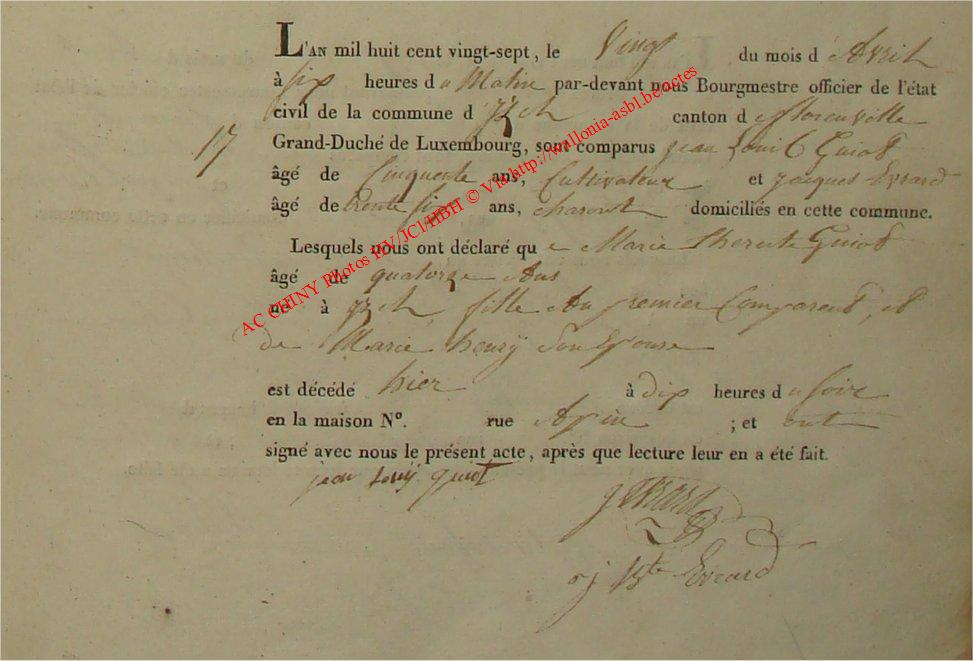 L'AN mil huit cent vingt-sept, le Vingt du mois d'Avril
à six heures du Matin par-devant nous Bourgmestre officier de l'état
civil de la commune d'Izel canton de florenville
17
Grand-Duché de Luxembourg, sont comparus jean Louis Guiot
âgé de Cinquente ans, Cultivateur et jacques Evrard
âgé de trente six ans, charont domiciliés en cette commune.
Lesquels nous ont déclaré que Marie therese Guiot
âgé de quatorze Ans
né à fille du premier Comparent, et
de Marie henrÿ son Epouse
est décédé hier à dix heures du soire
en la maison N°. rue ; et ont
signé avec nous le présent acte, après que lecture leur en a été fait.
jean Louÿ guiot
j Evrard
j Bte Evrard
AC CHINY Photos RV/JCl/HBH © Via http://wallonia-asbl.be/actes